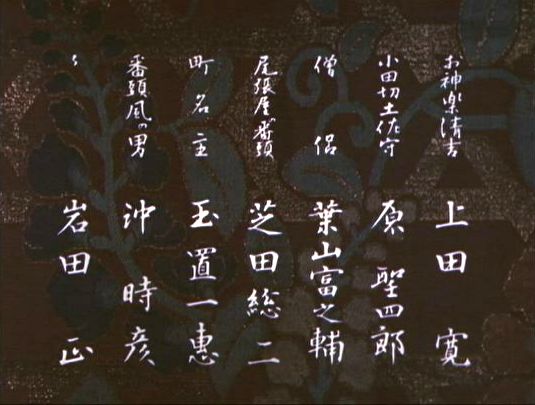 お神楽清吉 上田寛
小田切土佐守 原聖四郎
僧侶 葉山富之輔
尾張屋番頭 芝田総二
町名主 玉置一恵
番頭風の男 沖時彦
〃 岩田正